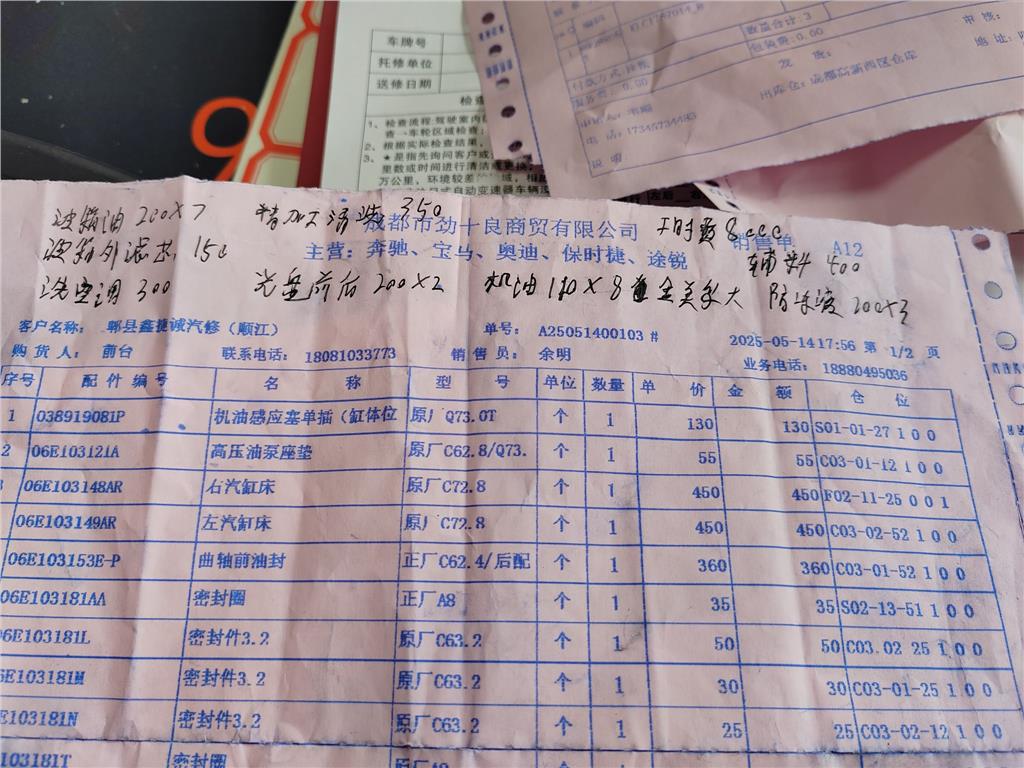 车牌号
托修单位
送修日期
1、检查流程:驾驶室内
查→车轮区域检查;
2、根据实际检查结果,
3、★是指先询问客户或
里数或时间进行清洁或更换;
数量合计:3
包装费:0.00
付款方式
发 货:
审核:
地址:
出库仓:成都高新西区仓库
电话:17345734483
说明
波箱油 200×7 350
波箱外滤芯 150
洗空调 300 光盘前后 200×2 机油 110×8 金美孚大 防冻液 200×3
工时费 8000
辅料 400
成都市劲十良商贸有限公司 销售单 A12
主营:奔驰、宝马、奥迪、保时捷、途锐
客户名称: 郫县鑫捷诚汽修(顺江) 单号: A25051400103 # 2025-05-14 17:56 第 1/2 页
购 货 人: 前台 联系电话: 18081033773 销 售 员: 余明 业务电话: 18880495036
序号 配 件 编 号 名 称 型 号 单位 数量 单 价 金 额 仓 位
1 038919081P 机油感应塞单插(缸体位 原厂Q73.0T 个 1 130 130 S01-01-27 1 0 0
2 06E103121A 高压油泵座垫 原厂C62.8/Q73. 个 1 55 55 C03-01-12 1 0 0
06E103148AR 右汽缸床 原厂C72.8 个 1 450 450 F02-11-25 0 0 1
06E103149AR 左汽缸床 原厂C72.8 个 1 450 450 C03-02-52 1 0 0
06E103153E-P 曲轴前油封 正厂C62.4/后配 个 1 360 360 C03-01-52 1 0 0
06E103181AA 密封圈 正厂A8 个 1 35 35 S02-13-51 1 0 0
06E103181L 密封件3.2 原厂C63.2 个 1 50 50 C03.02 25 1 0 0
6E103181M 密封件3.2 原厂C63.2 个 1 30 30 C03-01-25 1 0 0
E103181N 密封件3.2 原厂C63.2 个 1 25 25 C03-02-12 1 0 0
103181T 密封圈